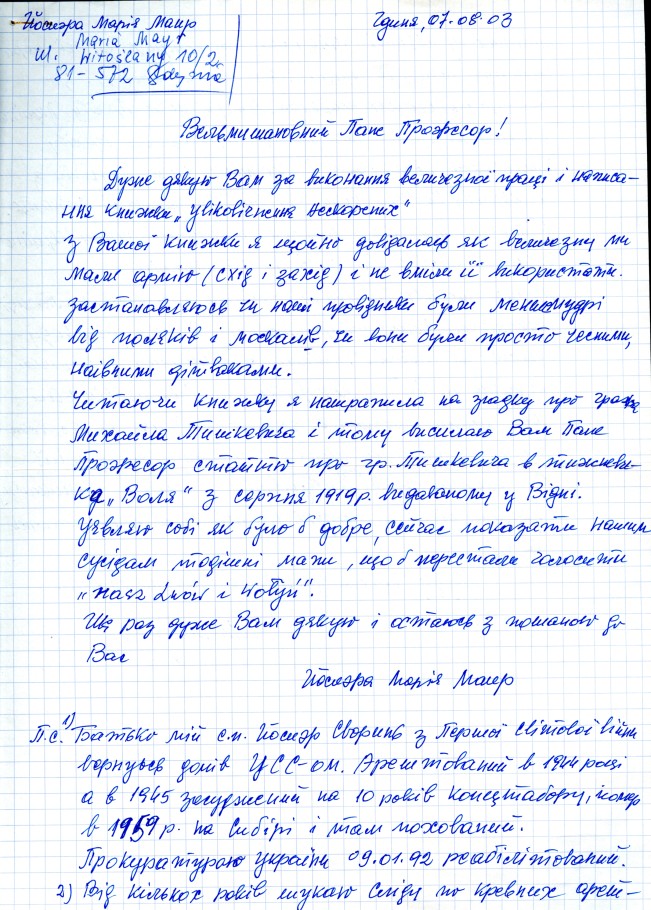 Йосифа Марія Маир
Гдиня, 07.08.03
Maria Mayr
ul. Witosławy 10/2
81-572 Gdynia
Вельмишановний Пане Професор!
Дуже дякую Вам за виконання величезної праці і написа-
ння книжки „Увіковічення нескорених"
З Вашої книжки я щойно довідалась як величезну ми
мали армію (схід і захід) і не вміли її використати.
Застановляюсь чи наші провідники були менш мудрі
від поляків і москалів, чи вони були просто чесними,
наівними дітваками.
Читаючи книжку я натрапила на згадку про графа
Михайла Тишкевича і тому висилаю Вам Пане
Професор статтю про гр. Тишкевича в тижневи-
ку „Воля" з серпня 1919р. видаваному у Відні.
Уявляю собі як було б добре, сейчас показати нашим
сусідам тодішні мапи, щоб перестали голосити
„nasz Lwów i Wołyń".
Ще раз дуже Вам дякую і остаюсь з пошаною до
Вас
Йосифа Марія Маир
П.С. 1) Батько мій с.п. Йосиф з Першої Світової війни
вернувсь домів УСС-ом. Арештований в 1944 році
а в 1945 засуджений на 10 років концтабору, помер
в 1959 р. на Сибірі і там похований.
Прокуратурою України 09.01.92 реабілітований.
2) Від кількох років шукаю сліду по кревних арешт-